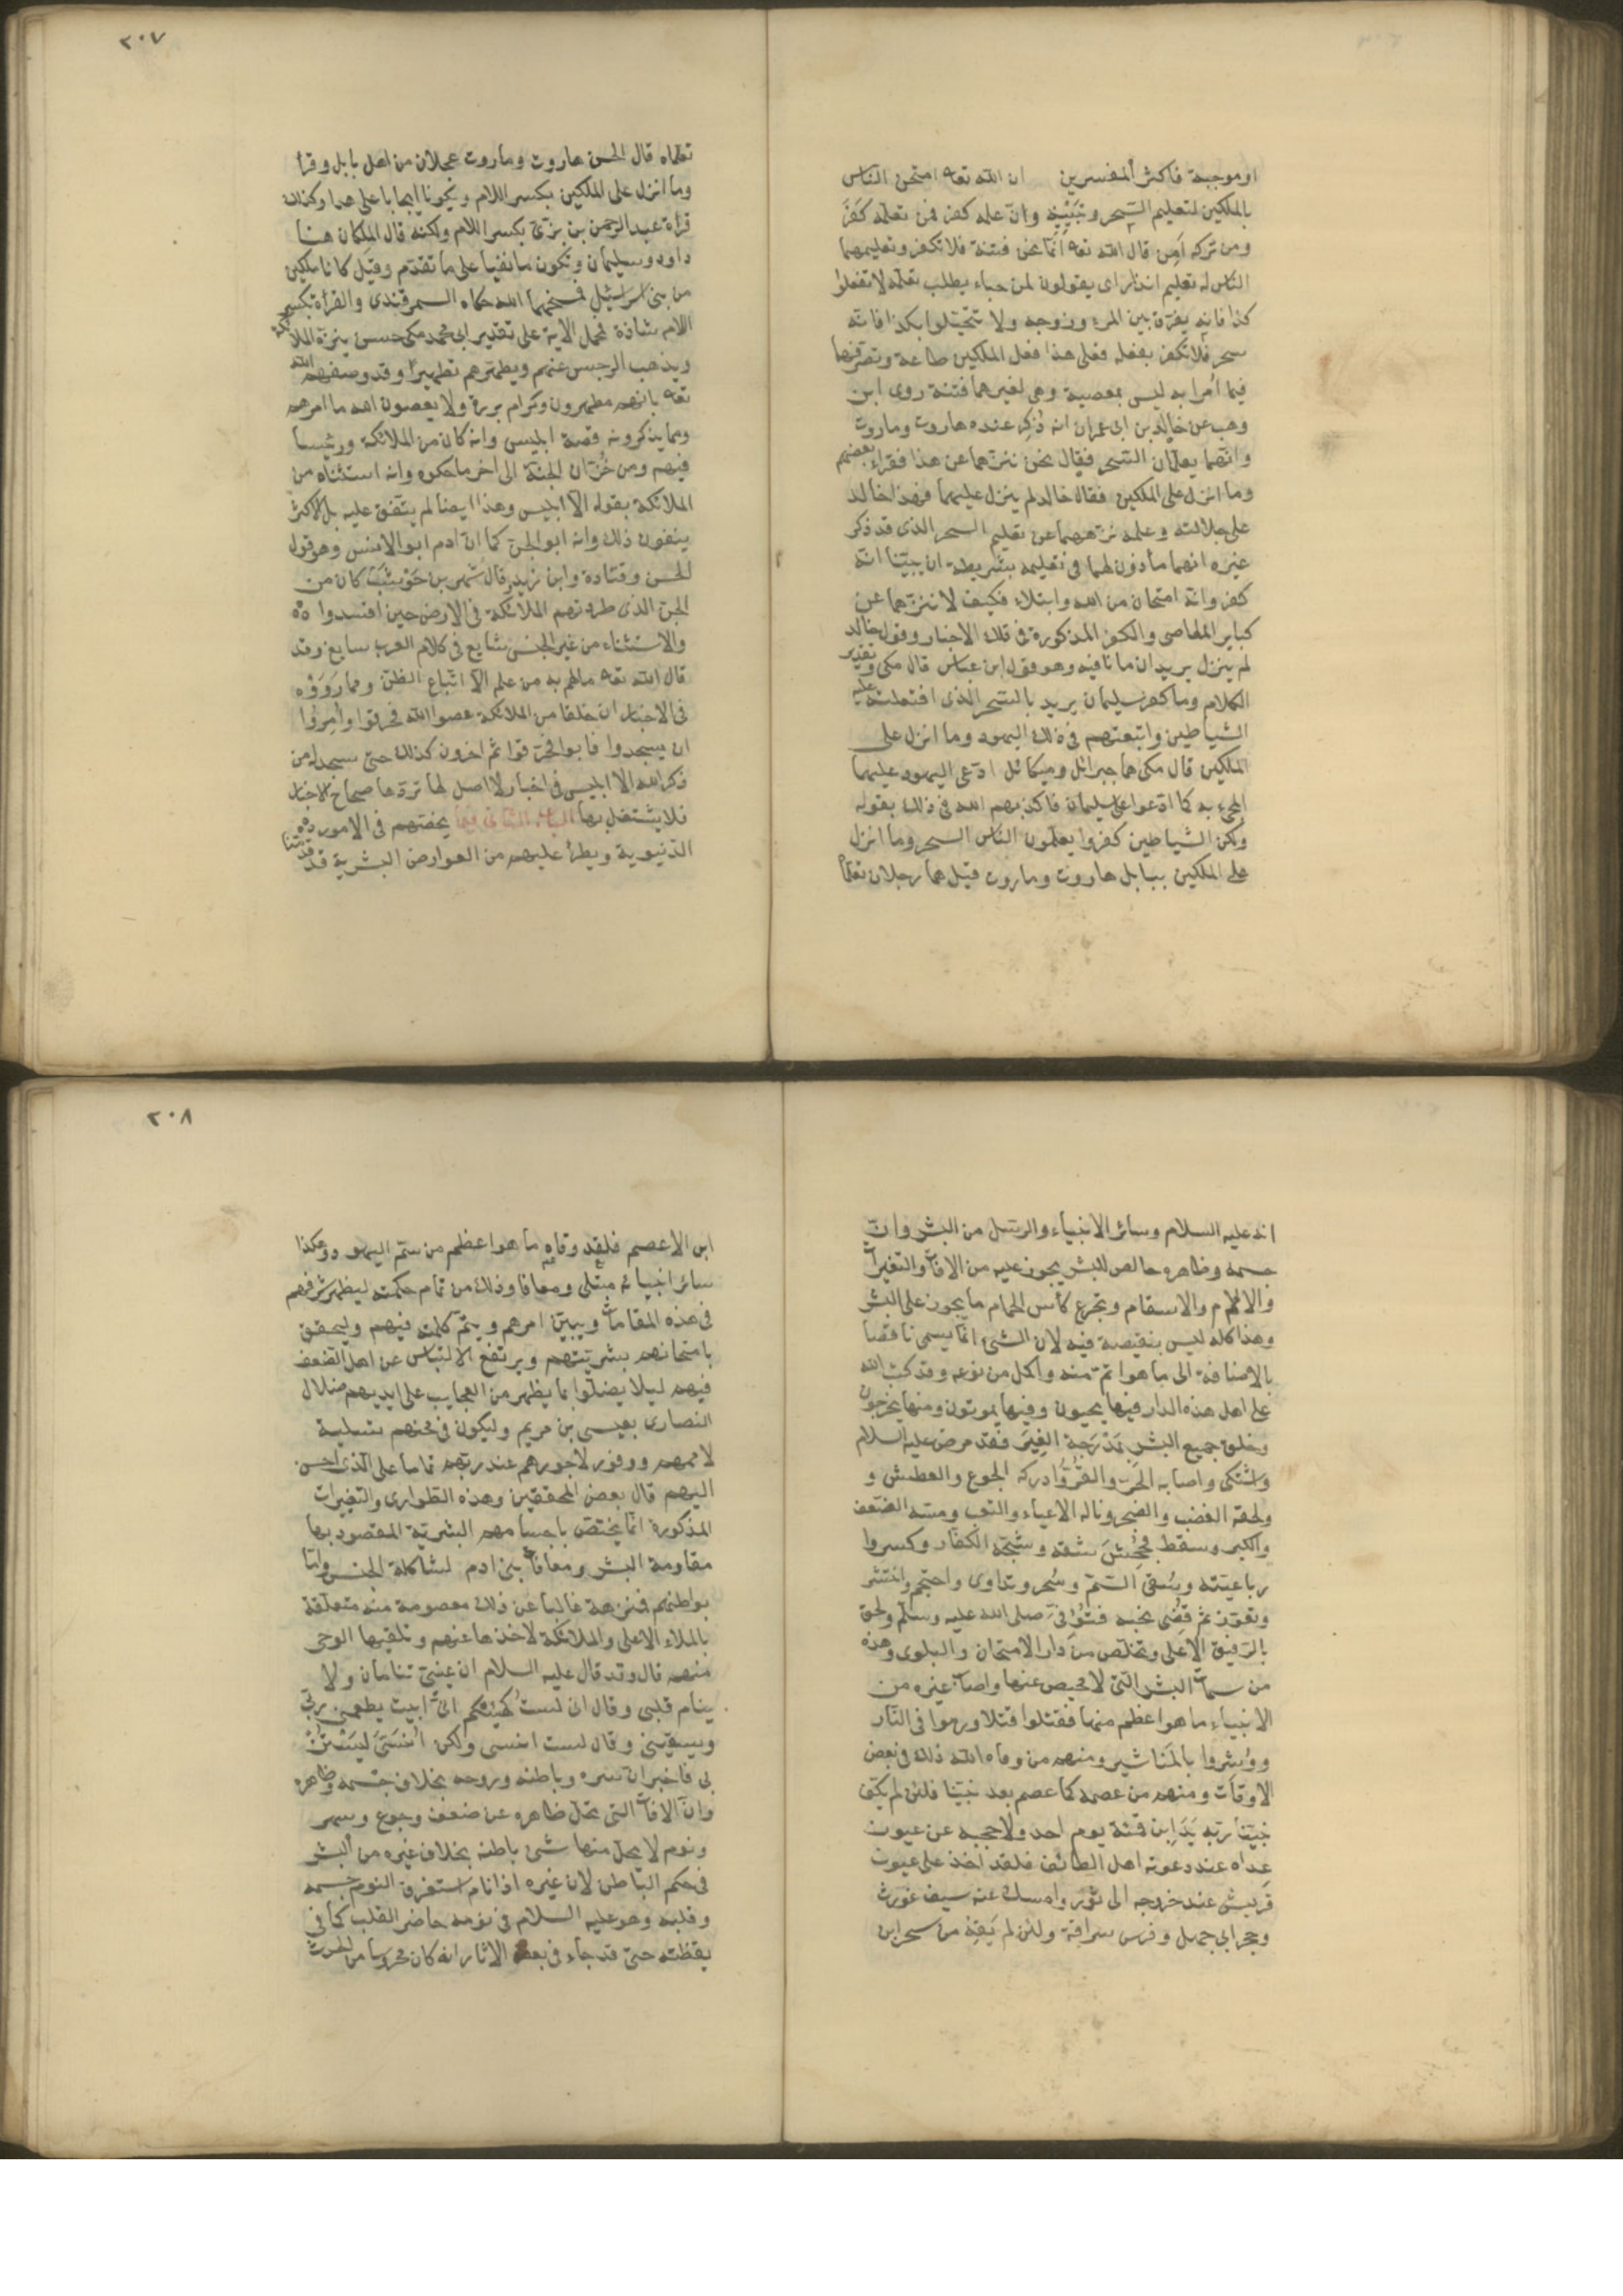 او موجبة فاكثر المفسرين ان الله تعه امتحن الناس
بالملكين لتعليم السحر وتبيينه وان عمله كفر فمن تعلمه كفر
ومن تركه امن قال الله تعه انما نحن فتنة فلا تكفر وتعليمهما
الناس له تعليم انذار اى يقولون لمن جاء يطلب تعلمه لا تفعلوا
كذا فانه يفرق بين المرء وزوجه ولا تتخيلوا بكذا فانه
سحر فلا تكفر بفعله فعلى هذا فعل الملكين طاعة وتصرفهما
فيما أمرا به ليس بمعصية وهى لغيرهما فتنة روى ابن
وهب عن خالد بن ابى عمران انه ذكر عنده هاروت وماروت
وانهما يعلمان السحر فقال نحن ننزههما عن هذا فقراء بعضهم
وما انزل على الملكين فقال خالد لم ينزل عليهما فهذا خالد
على جلالته وعلمه نزههما عن تعليم السحر الذى قد ذكر
غيره انهما مأذون لهما فى تعليمه بشريطة ان يبينا انه
كفر وانه امتحان من الله وابتلاء فكيف لا ننزههما عن
كباير المعاصى والكفر المذكورة فى تلك الاخبار وقول خالد
لم ينزل يريد ان ما نافية وهو قول ابن عباس قال مكى وتقدير
الكلام وما كفر سليمان يريد بالسحر الذى افتعلته عليه
الشياطين واتبعتهم فى ذلك اليهود وما انزل على
الملكين قال مكى هما جبرائل وميكائل ادعى اليهود عليهما
المجىء به كما ادعوا على سليمان فاكذبهم الله فى ذلك بقوله
ولكن الشياطين كفروا يعلمون الناس السحر وما انزل
على الملكين ببابل هاروت وماروت قيل هما رجلان تعلما
٢٠٧
تعلماه قال الحسن هاروت وماروت علجان من اهل بابل وقرأ
وما انزل على الملكين بكسر اللام ويكون ما ايجابا على هذا وكذلك
قراة عبد الرحمن بن بزى بكسر اللام ولكنه قال الملكان هنا
داود وسليمان وتكون ما نفيا على ما تقدم وقيل كانا ملكين
من بنى اسرائيل فمسخهما الله حكاه السمرقندى والقرأة بكسر
اللام شاذة فمحمل الاية على تقدير ابى محمد مكى حسن ينزه الملائكة
ويذهب الرجس عنهم ويطهرهم تطهيرا وقد وصفهم الله
تعه بانهم مطهرون وكرام بررة ولا يعصون الله ما امرهم
ومما يذكرونه قصة ابليس وانه كان من الملائكة ورئيسا
فيهم ومن خزان الجنة الى اخر ما حكوه وانه استثناه من
الملائكة بقوله الا ابليس وهذا ايضا لم يتفق عليه بل الاكثر
ينفون ذلك وانه ابو الجن كما ان ادم ابو الانس وهو قول
الحسن وقتادة وابن زيد وقال شهر بن حوشب كان من
الجن الذى طردتهم الملائكة فى الارض حين افسدوا
والاستثناء من غير الجنس شايع فى كلام العرب سايغ وقد
قال الله تعه مالهم به من علم الا اتباع الظن ومما رووه
فى الاخبار ان خلقا من الملائكة عصوا الله فحرقوا وأمروا
ان يسجدوا فابوا فحرقوا ثم اخرون كذلك حتى سجد له من
ذكر الله الا ابليس فى اخبار لا اصل لها تردها صحاح الاخبار
فلا يشتغل بها الباب الثانى فيما يخصهم فى الامور
الدنيوية ويطرأ عليهم من العوارض البشرية قد قدمنا
انه عليه السلام وسائر الانبياء والرسل من البشر وان
جسمه وظاهره خالص للبشر يجوز عليه من الافات والتغيرات
والالام والاسقام وتجرع كأس الحمام ما يجوز على البشر
وهذا كله ليس بنقيصة فيه لان الشئ انما يسمى ناقصا
بالاضافة الى ما هو اتم منه واكمل من نوعه وقد كتب الله
على اهل هذه الدار فيها يحيون وفيها يموتون ومنها يخرجون
وخلق جميع البشر بمدرجة الغير فقد مرض عليه السلام
واشتكى واصابه الحر والقر وادركه الجوع والعطش و
ولحقه الغضب والضجر وناله الاعياء والتعب ومسه الضعف
والكبر وسقط فجحش شقه وشجه الكفار وكسروا
رباعيته وسقى السم وسحر وتداوى واحتجم وانتشر
وتعوذ ثم قضى نحبه فتوفى صلى الله عليه وسلم ولحق
بالرفيق الاعلى وتخلص من دار الامتحان والبلوى وهذه
من سمات البشر التى لا محيص عنها واصاب غيره من
الانبياء ما هو اعظم منها فقتلوا قتلا ورموا فى النار
ووشروا بالمناشير ومنهم من وقاه الله ذلك فى بعض
الاوقات ومنهم من عصمه كما عصم بعد نبينا فلئن لم يكف
نبينا ربه يد ابن قمئة يوم احد ولا حجبه عن عيون
عداه عند دعوته اهل الطائف فلقد اخذ على عيون
قريش عند خروجه الى ثور وامسك عنه سيف غورث
وحجر ابى جهل وفرس سراقة ولئن لم يقه من سحر ابن
٢٠٨
ابن الاعصم فلقد وقاه ما هو اعظم من سم اليهودية وهكذا
سائر انبيائه مبتلى ومعافا وذلك من تمام حكمته ليظهر شرفهم
فى هذه المقامات ويبين امرهم ويتم كلمته فيهم وليحقق
بامتحانهم بشريتهم ويرتفع الالتباس عن اهل الضعف
فيهم ليلا يضلوا بما يظهر من العجايب على ايديهم ضلال
النصارى بعيسى بن مريم وليكون فى محنهم تسلية
لاممهم ووفور لاجورهم عند ربهم تماما على الذى احسن
اليهم قال بعض المحققين وهذه الطوارى والتغيرات
المذكورة انما يختص باجسامهم البشرية المقصود بها
مقاومة البشر ومعاناة بنى ادم لمشاكلة الجنس واما
بواطنهم فمنزهة غالبا عن ذلك معصومة منه متعلقة
بالملاء الاعلى والملائكة لاخذها عنهم وتلقيها الوحى
منهم قال وقد قال عليه السلام ان عينى تنامان ولا
ينام قلبى وقال انى لست كهيئتكم انى ابيت يطعمنى ربى
ويسقينى وقال لست انسى ولكن أنسى ليستن
بى فاخبر ان سره وباطنه وروحه بخلاف جسمه وظاهره
وان الافات التى تحل ظاهره عن ضعف وجوع وسهر
ونوم لا يحل منها شئ باطنه بخلاف غيره من البشر
فى حكم الباطن لان غيره اذا نام استغرق النوم جسمه
وقلبه وهو عليه السلام فى نومه حاضر القلب كما فى
يقظته حتى قد جاء فى بعض الاثار انه كان محروسا من الحدث